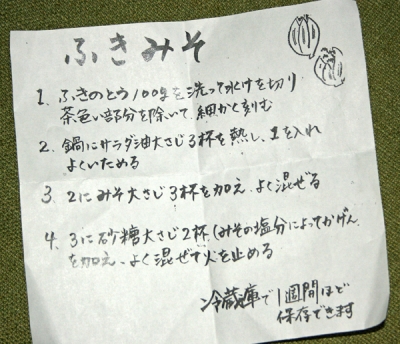 ふきみそ
1. ふきのとう100gを洗って水けを切り
茶色い部分を除いて、細かく刻む
2. 鍋にサラダ油大さじ3杯を熱し、1を入れ
よくいためる
3. 2にみそ大さじ3杯を加え、よく混ぜる
4. 3に砂糖大さじ2杯(みその塩分によってかげん)
を加え、よく混ぜて火を止める
冷蔵庫で1週間ほど
保存できます